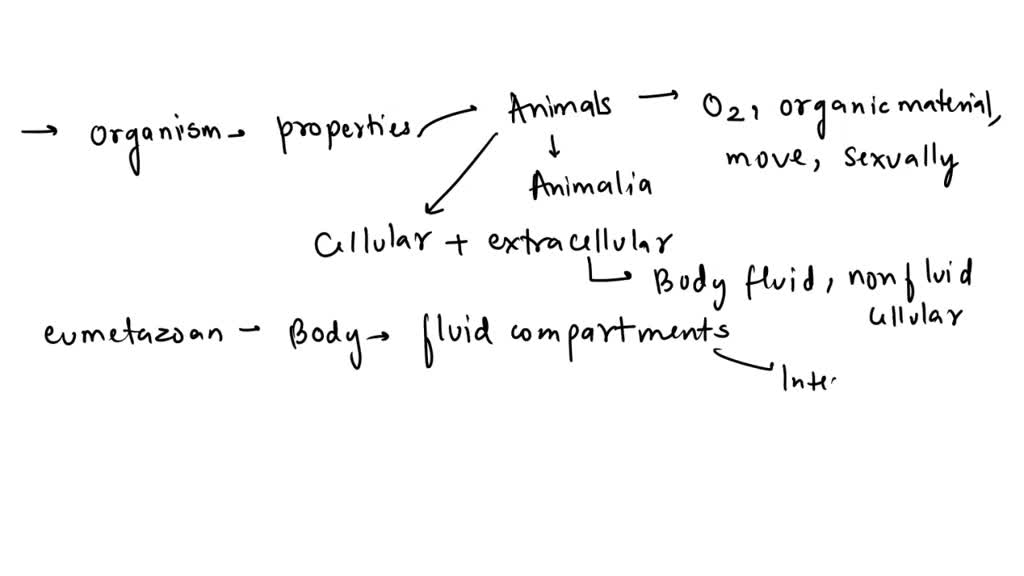 → organism → properties → Animals → O2, organic material,
move, sexually
↓
Animalia
Cellular + extracellular
Body fluid, nonfluid
cellular
eumetazoan - Body → fluid compartments
Inte